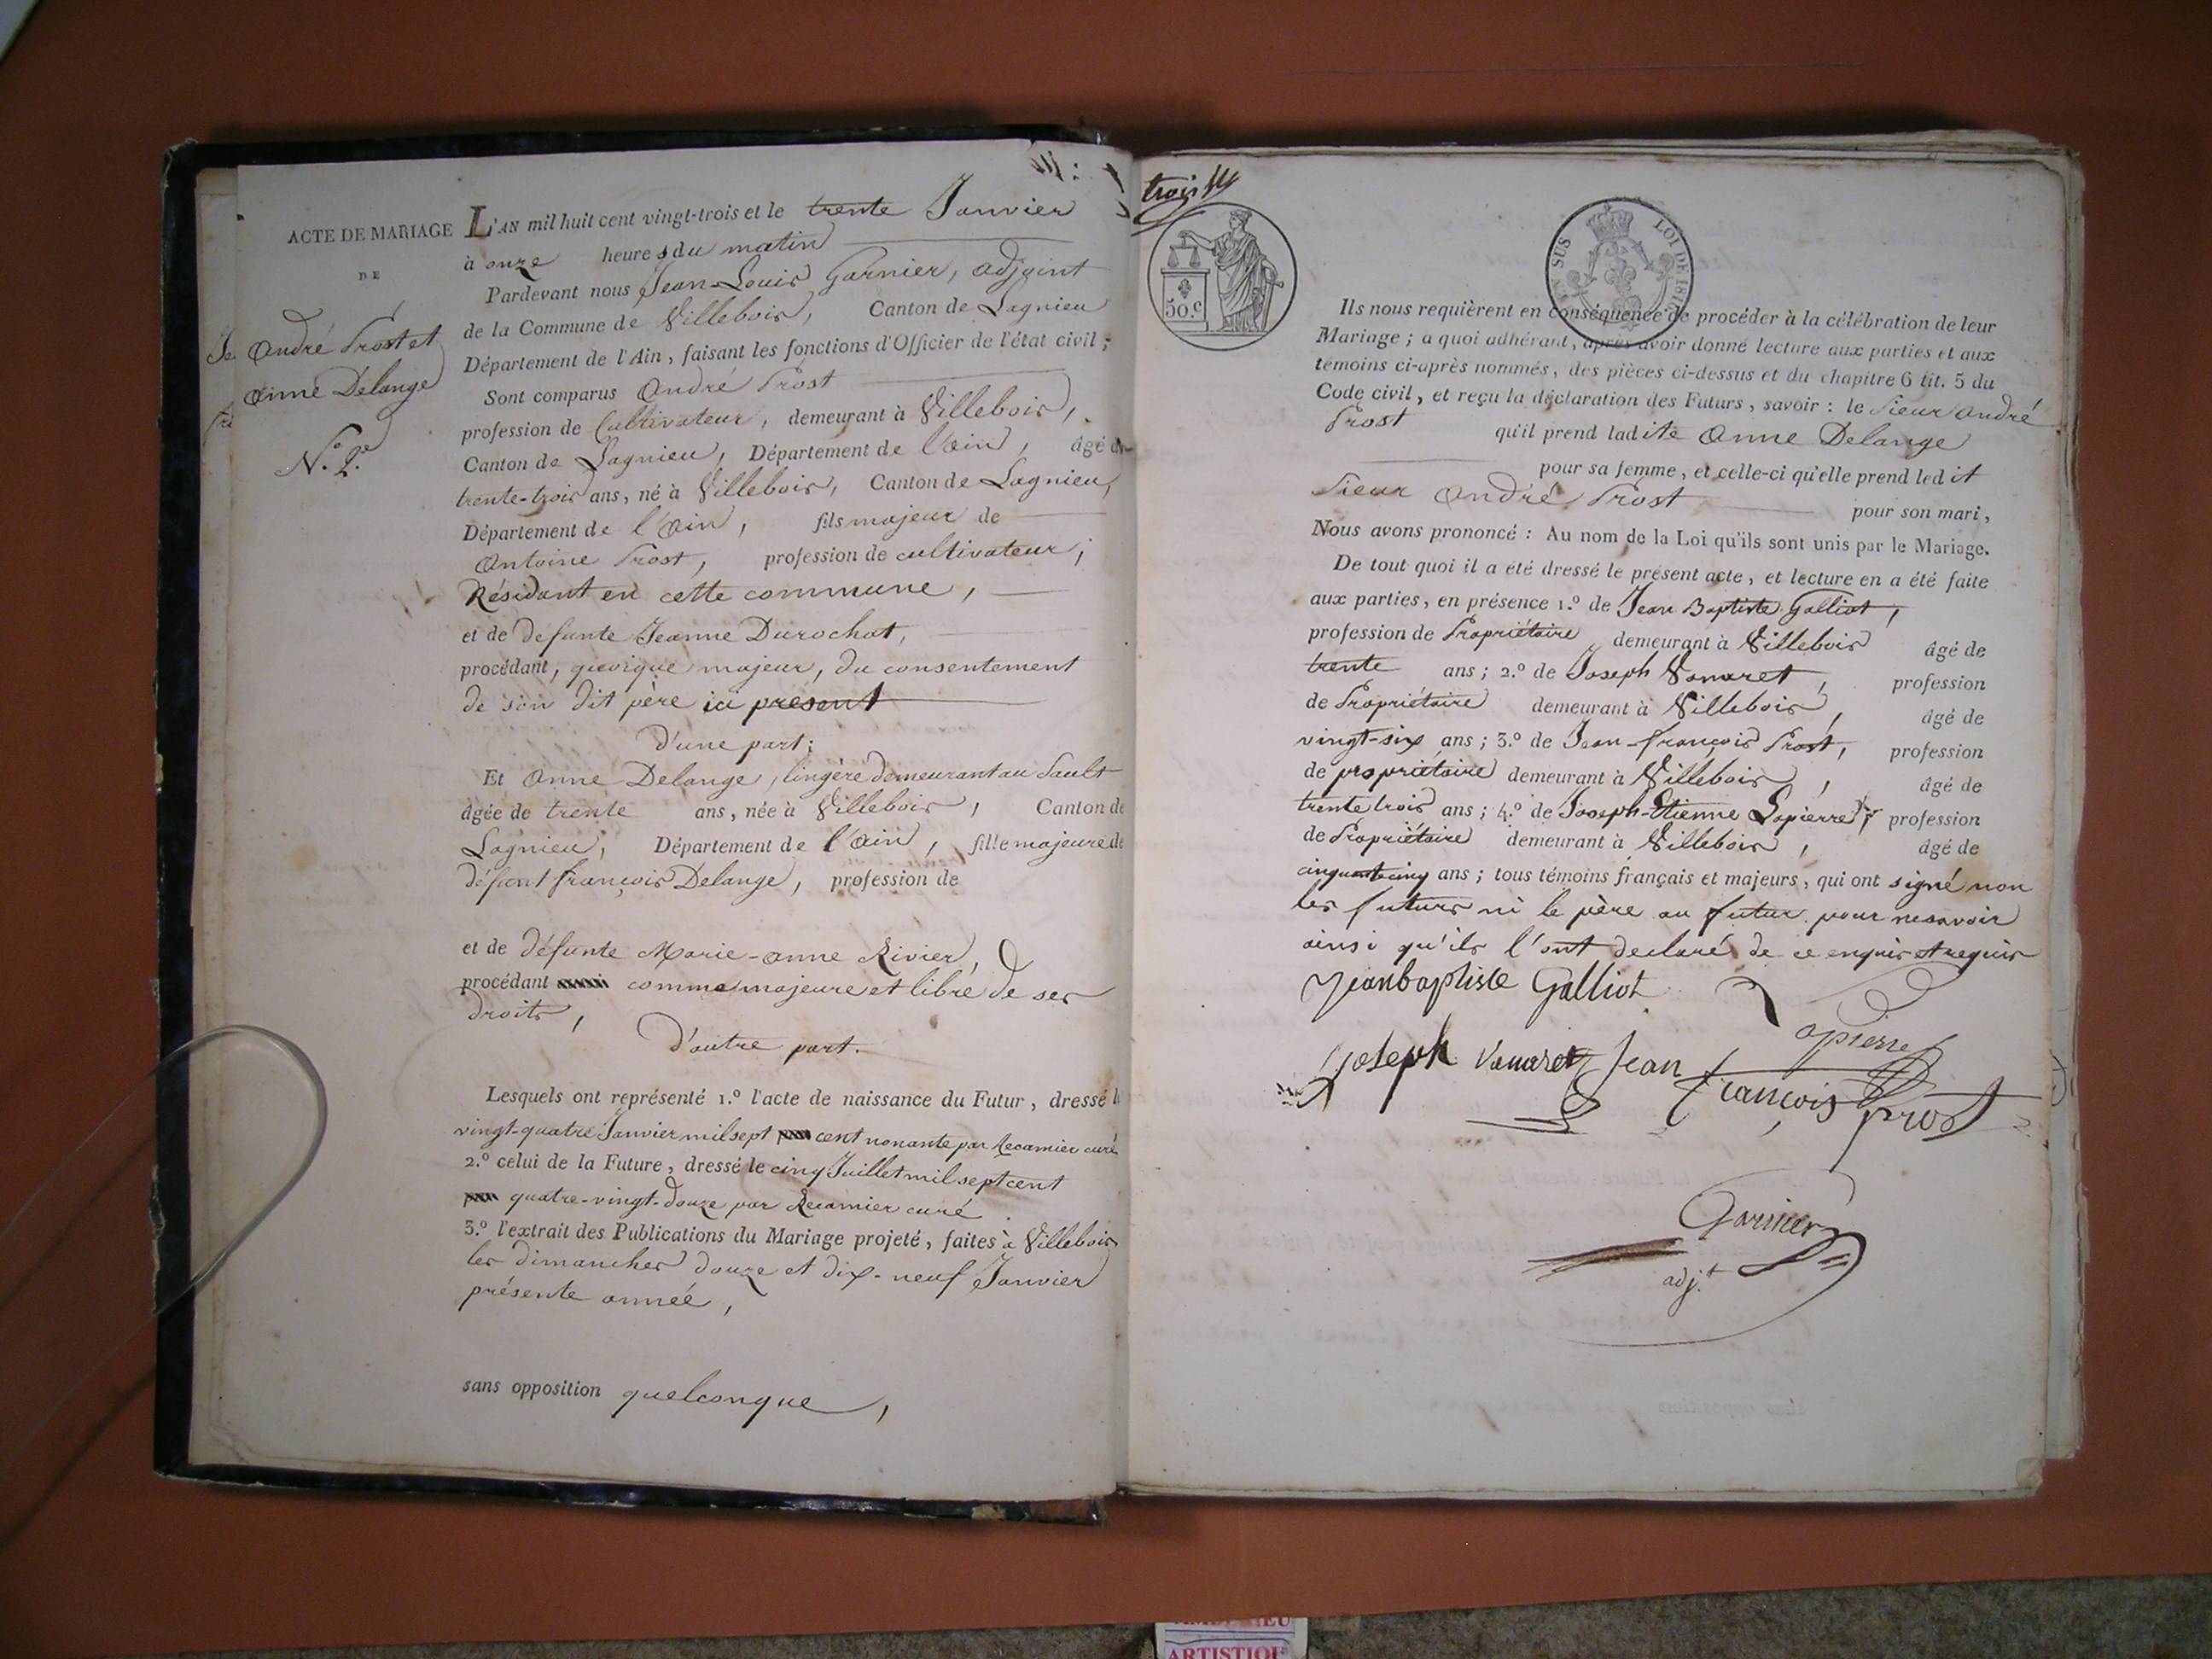 ACTE DE MARIAGE
DE
André Prost et
Anne Délange
N.º 2.e
L'AN mil huit cent vingt-trois et le trente Janvier
à onze heures du matin
Pardevant nous Jean-Louis Garnier, adjoint
de la Commune de Villebois, Canton de Lagnieu
Département de l'Ain, faisant les fonctions d'Officier de l'état civil;
Sont comparus André Prost
profession de Cultivateur, demeurant à Villebois,
Canton de Lagnieu, Département de l'ain, âgé de
trente-trois ans, né à Villebois, Canton de Lagnieu,
Département de l'ain, fils majeur de
Antoine Prost, profession de cultivateur;
Résidant en cette commune,
et de défunte Jeanne Durochat,
procédant, quoique majeur, du consentement
de son dit père ici présent
D'une part;
Et Anne Delange, lingère demeurant au Sault
âgée de trente ans, née à Villebois, Canton de
Lagnieu, Département de l'ain, fille majeure de
défunt françois Delange, profession de
et de défunte Marie-anne Rivier,
procédant comme majeure et libre de ses
droits,
D'autre part.
Lesquels ont représenté 1.º l'acte de naissance du Futur, dressé le
vingt-quatre Janvier mil sept cent nonante par Recamier curé
2.º celui de la Future, dressé le cinq Juillet mil sept cent
quatre-vingt-douze par Recamier curé
3.º l'extrait des Publications du Mariage projeté, faites à Villebois
les dimanches douze et dix-neuf Janvier
présente année,
sans opposition quelconque,
trois
50.c
SUS
LOI DE 1816
Ils nous requièrent en conséquence de procéder à la célébration de leur
Mariage; a quoi adhérant, après avoir donné lecture aux parties et aux
témoins ci-après nommés, des pièces ci-dessus et du chapitre 6 tit. 5 du
Code civil, et reçu la déclaration des Futurs, savoir: le Sieur André
Prost qu'il prend ladite Anne Delange
pour sa femme, et celle-ci qu'elle prend led it
Sieur André Prost pour son mari,
Nous avons prononcé: Au nom de la Loi qu'ils sont unis par le Mariage.
De tout quoi il a été dressé le présent acte, et lecture en a été faite
aux parties, en présence 1.º de Jean Baptiste Galliot,
profession de Propriétaire demeurant à Villebois âgé de
trente ans; 2.º de Joseph Vanaret, profession
de Propriétaire demeurant à Villebois, âgé de
vingt-six ans; 3.º de Jean-françois Prost, profession
de propriétaire demeurant à Villebois, âgé de
trente trois ans; 4.º de Joseph-Etienne Lapierre, profession
de Propriétaire demeurant à Villebois, âgé de
cinquante cinq ans; tous témoins français et majeurs, qui ont signé non
les futurs ni le père au futur pour ne savoir
ainsi qu'ils l'ont declaré de ce enquis et requis
Jeanbaptiste Galliot
apierre
joseph vanaret Jean
françois prost
Garnier
adj.t
ARTISTIQUE